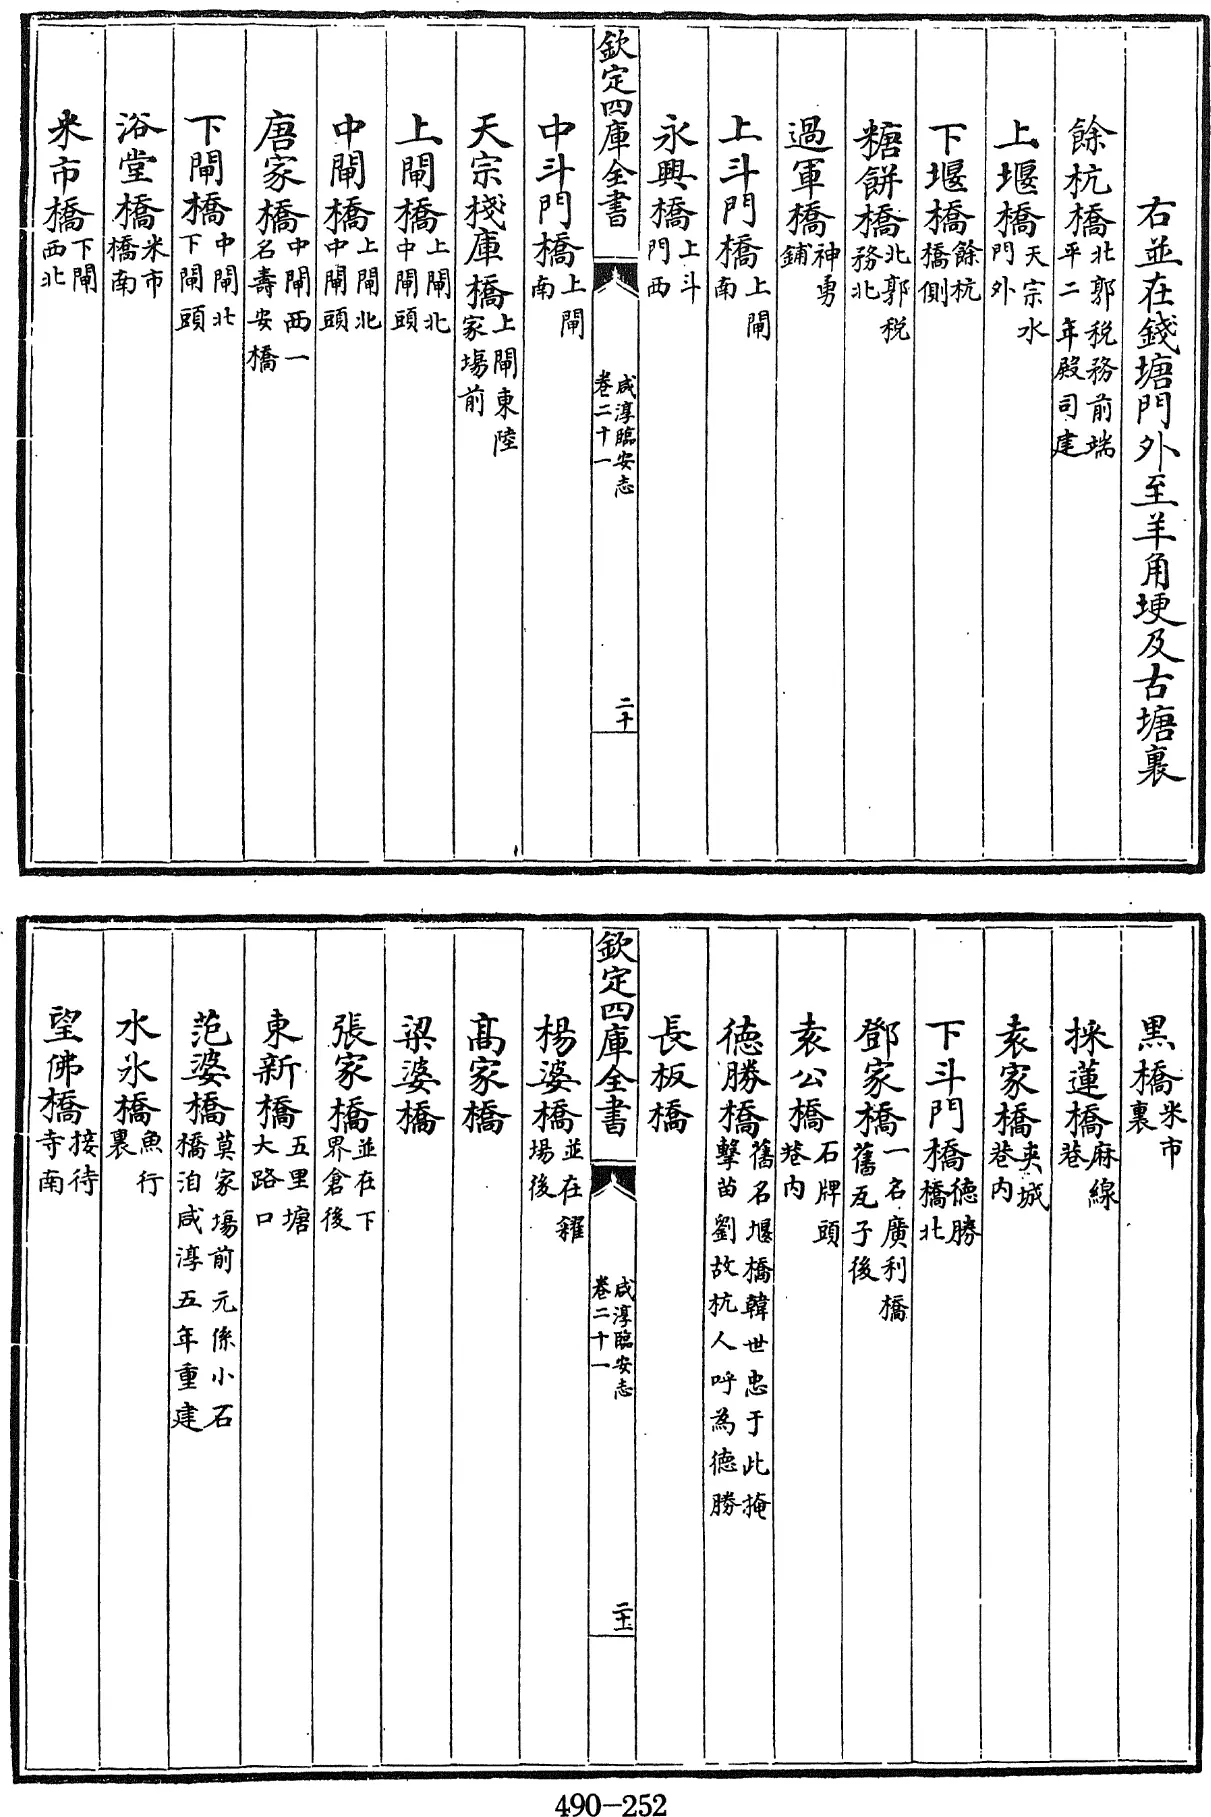 右並在錢塘門外至羊角埂及古塘裏
餘杭橋北郭税務前端平二年殿司建
上堰橋天宗水門外
下堰橋餘杭橋側
糖餅橋北郭税務北
過軍橋神勇鋪
上斗門橋上閘南
永興橋上斗門西
欽定四庫全書
咸淳臨安志
卷二十一
二十
中斗門橋上閘南
天宗棧庫橋上閘東陸家場前
上閘橋上閘北中閘頭
中閘橋上閘北中閘頭
唐家橋中閘西一名壽安橋
下閘橋中閘北下閘頭
浴堂橋米市橋南
米市橋下閘西北
黑橋米市裏
採蓮橋麻線巷
袁家橋夾城巷内
下斗門橋德勝橋北
鄧家橋一名廣利橋舊瓦子後
袁公橋石牌頭巷内
德勝橋舊名堰橋韓世忠于此掩擊苗劉故杭人呼為德勝
長板橋
欽定四庫全書
咸淳臨安志
卷二十一
二十一
楊婆橋並在糴場後
髙家橋
梁婆橋
張家橋並在下界倉後
東新橋五里塘大路口
范婆橋莫家塲前元係小石橋泊咸淳五年重建
水氷橋魚行裏
望佛橋接待寺南
490-252